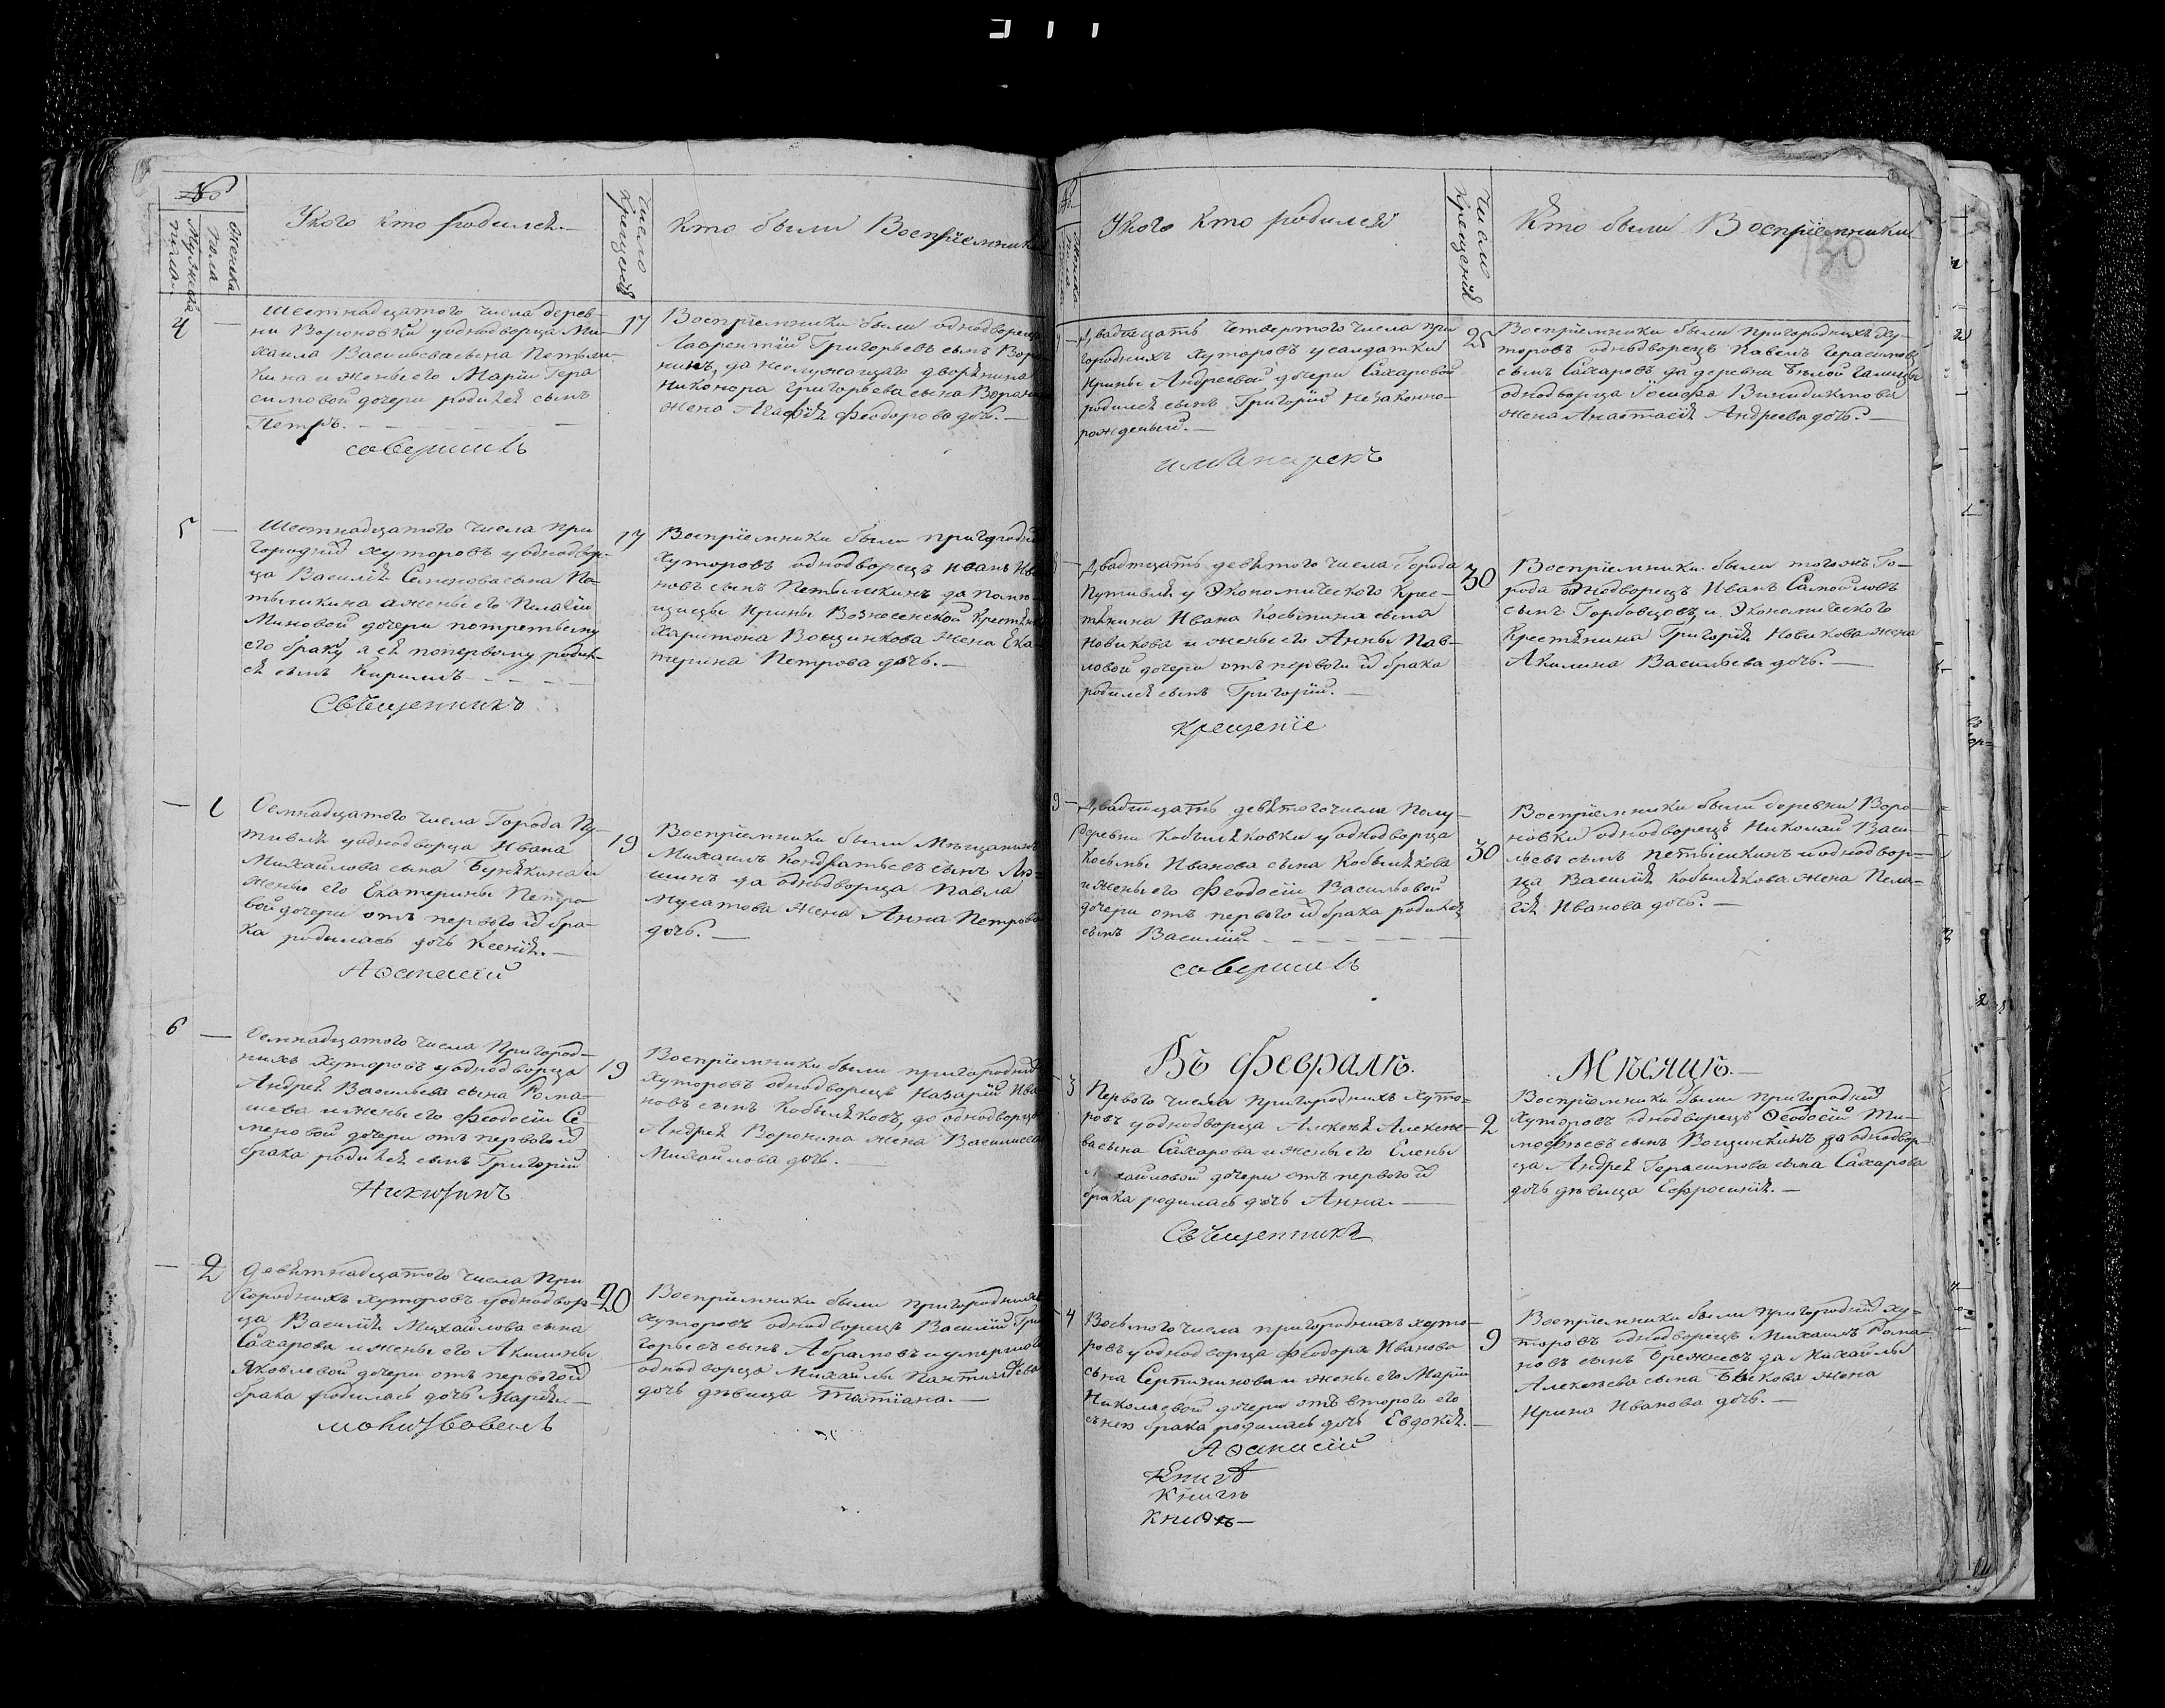 №
Мужеска пола.
Женска пола
Укого кто родился.
Число крещенія
Кто были Воспріемники
4 —
Шестнадцатого числа дерев-
ни Вороновки уоднодворца Ми-
хаила Васильевасына Петыш-
кина и жены его Маріи Гера
симовой дочери родился сынъ
Петръ.
совершилъ
17
Воспріемники были однодворецъ
Лаврентій Григорьевъ сынъ Воро
нинъ, да неслужащаго дворянина
Никонора Григорьева сына Воронина
жена Агафія Феодорова дочь. —
5 —
Шестнадцатого числа при
городнихъ хуторовъ уоднодвор-
ца Василія Семеновасына Пе-
тышкина аженыего Пелагіи
Миновой дочери потретьему
его браку а ея поперьвому родил-
ся сынъ Кириллъ
Священникъ
17
Воспріемники были пригородни
хуторовъ однодворецъ Иванъ Ива
новъ сынъ Петышкинъ да поме-
щицы Ирины Вознесенской крестьян
Харитона Вощинкова жена Ека-
терина Петрова дочь. —
— 1
Осмнадцатого числа Города Пу-
тивля уоднодворца Ивана
Михайлова сына Бунякина и
жены его Екатерины Петро-
вой дочери отъ первого ихъ бра-
ка родилась дочь Ксенія. —
Афанасій
19
Воспріемники были Мѣщанинъ
Михаилъ Кондратьевъ сынъ Лю-
шинъ да однодворца Павла
Мусатова жена Анна Петрова
дочь. —
6 —
Осмнадцатого числа Пригород-
нихъ хуторовъ уоднодворца
Андрея Васильева сына Рома-
шева иженыего Феодосіи Се-
меновой дочери отъ первогоихъ
брака родился сынъ Григорій
Никитинъ
19
Воспріемники были пригороднихъ
хуторовъ однодворецъ Назарій Ива
новъ сынъ Кобыляковъ, да однодворца
Андрея Воронина жена Василиса
Михайлова дочь. —
— 2
Девятнадцатого числа При
городнихъ хуторовъ уоднодвор-
ца Василія Михайлова сына
Сахарова иженыего Акилины
Яковлевой дочери отъ первогоихъ
брака родилась дочь Марія. —
20
Воспріемники были пригороднихъ
хуторовъ однодворецъ Василій Гри
горьевъ сынъ Абрамовъ и умершого
однодворца Михайлы Пантилѣева
дочь дѣвица Татіана. —
№
Женска пола
Укого кто родился
Число Крещенія
Кто были Воспріемники
130
Двадцать четвертого числа при
городнихъ хуторовъ усалдатки
Ирины Андреевой дочери Сахаровой
родился сынъ Григорій незаконно-
рожденый. —
25
Воспріемники были пригороднихъ ху-
торовъ однодворецъ Павелъ Герасимовъ
сынъ Сахаровъ да деревни Бѣлой Галицы
однодворца Іосифа Винидиктова
жена Анастасія Андреева дочь. —
Двадцать девятого числа Города
Путивля у Экономического крес-
тянина Ивана Косьмина сына
Новикова и жены его Анны Пав-
ловой дочери отъ первого ихъ брака
родился сынъ Григорій. —
крещеніе
30
Воспріемники были тогожъ Го-
рода однодворецъ Иванъ Самойловъ
сынъ Горбовцовъ и Экономического
крестянина Григорія Новикова жена
Акилина Васильева дочь. —
9 —
Двадцать девятогочисла Полу-
деревни Кобыляковки уоднодворца
Косьмы Иванова сына Кобылякова
иженыего Феодосіи Васильевой
дочери отъ первого ихъ брака родился
сынъ Василій.
совершилъ
30
Воспріемники были деревни Воро-
новки однодворецъ Николай Васи-
льевъ сынъ Петышкинъ иоднодвор-
ца Василія Кобылякова жена Пела-
гія Иванова дочь. —
Въ Февралѣ. Мѣсяцѣ. —
3
Первого числа пригороднихъ хуто-
ровъ уоднодворца Алексѣя Алексѣе-
васына Сахарова иженыего Елены
Михайловой дочери отъ первого ихъ
брака родилась дочь Анна. —
Священникъ
2
Воспріемники были пригороднихъ
хуторовъ однодворецъ Феодосій Ти-
мофѣевъ сынъ Вощинкинъ да однодвор-
ца Андрея Герасимова сына Сахарова
дочь дѣвица Ефросинія. —
4
Восьмогочисла пригороднихъ хуто-
ровъ уоднодворца Феодора Иванова
сына Сертикинова и жены его Маріи
Николаевой дочери отъ второго его
снею брака родилась дочь Евдокія. —
Афанасій
Книгѣ
Книгъ
9
Воспріемники были пригороднихъ ху-
торовъ однодворецъ Михаилъ Рома-
новъ сынъ Брежневъ да Михайлы
Алексѣева сына Быкова жена
Ирина Иванова дочь. —